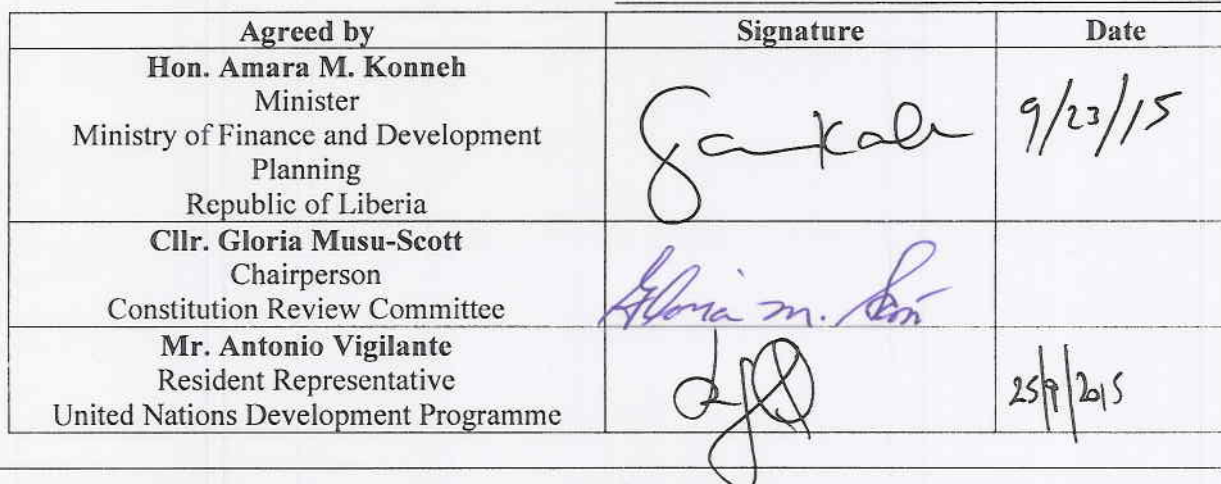 Agreed by Signature Date
Hon. Amara M. Konneh
Minister
Ministry of Finance and Development
Planning
Republic of Liberia
9/23/15
Cllr. Gloria Musu-Scott
Chairperson
Constitution Review Committee
Gloria M. Scott
Mr. Antonio Vigilante
Resident Representative
United Nations Development Programme
25/9/2015